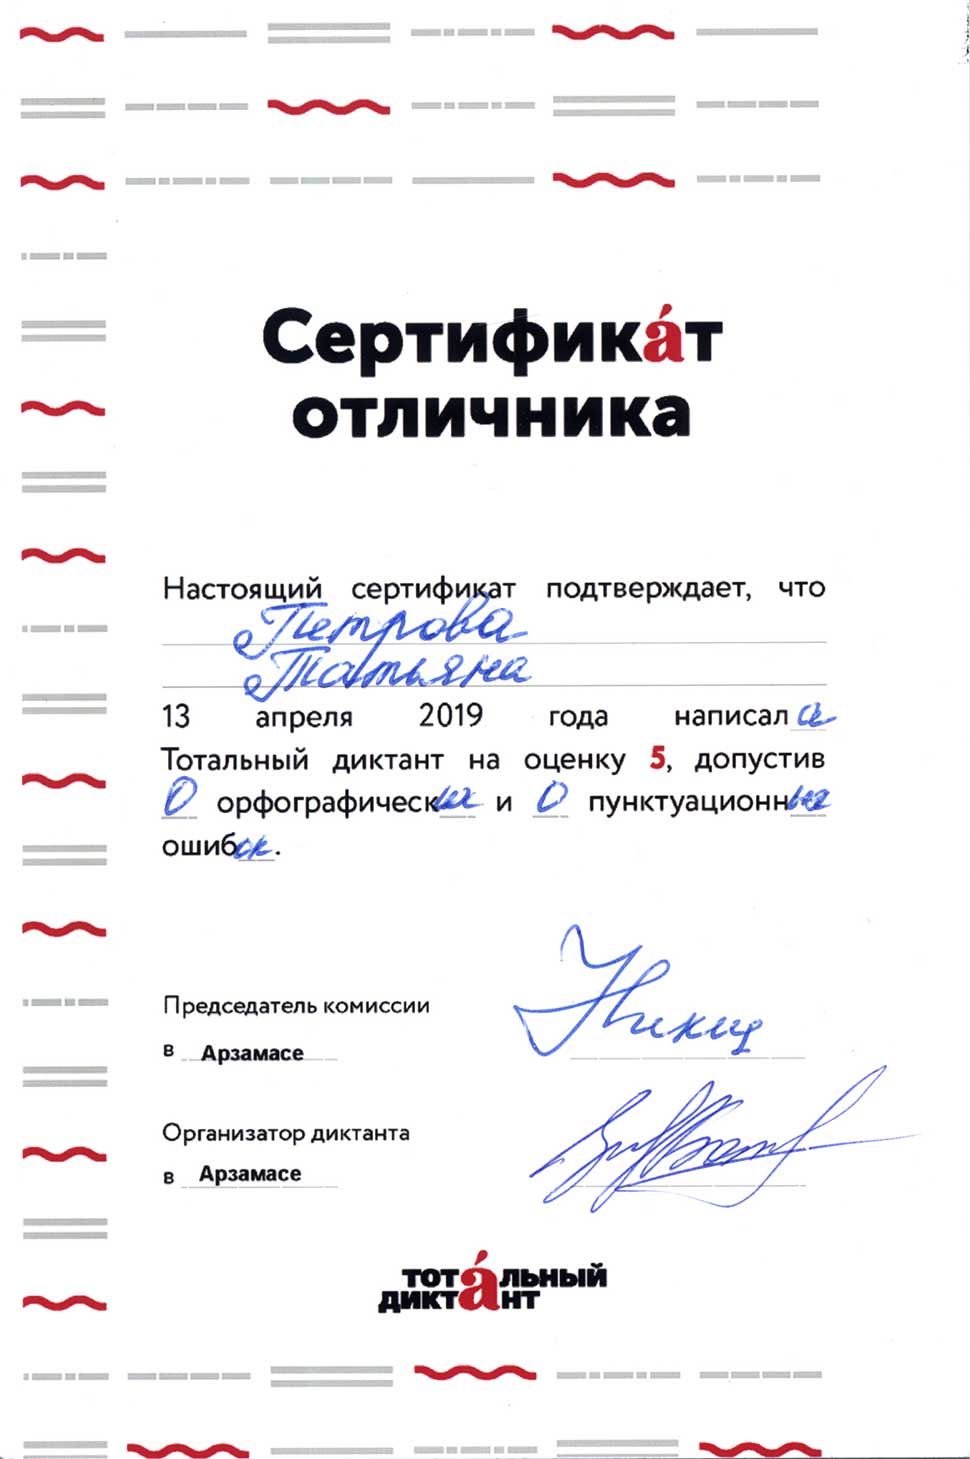 Сертифика́т
отличника
Настоящий сертификат подтверждает, что
Петрова
Татьяна
13 апреля 2019 года написала
Тотальный диктант на оценку 5, допустив
0 орфографических и 0 пунктуационных
ошибок.
Председатель комиссии
в Арзамасе
Организатор диктанта
в Арзамасе
тота́льный
диктант